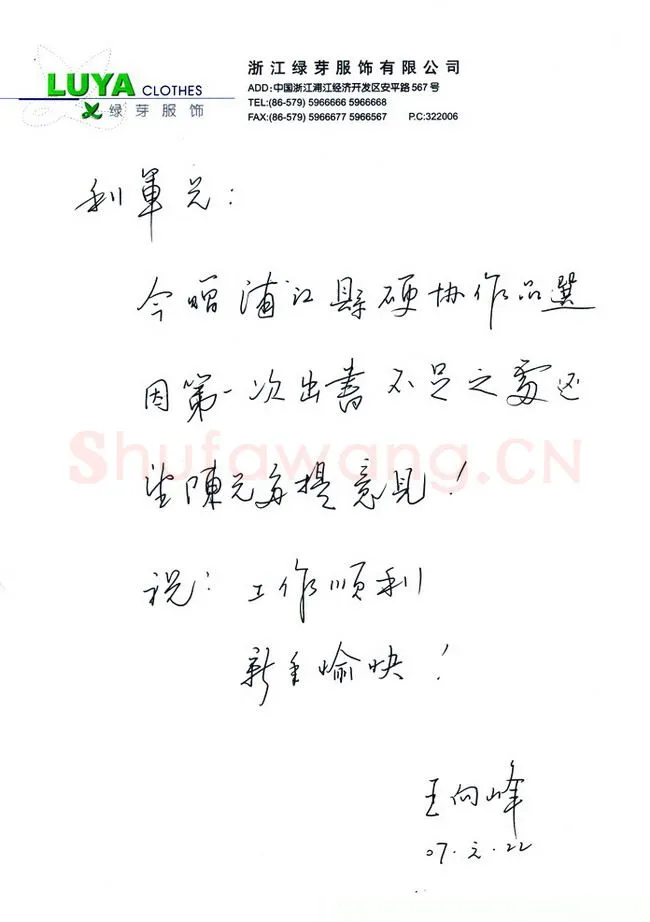 LUYA CLOTHES
绿芽服饰
浙江绿芽服饰有限公司
ADD:中国浙江浦江经济开发区安平路567号
TEL:(86-579) 5966666 5966668
FAX:(86-579) 5966677 5966567 P.C:322006
利軍兄:
今贈浦江縣硬协作品選
因第一次出書不足之處还
望陳兄多提意見!
祝:工作順利
新年愉快!
王向峰
07.元.22
Shufawang.CN